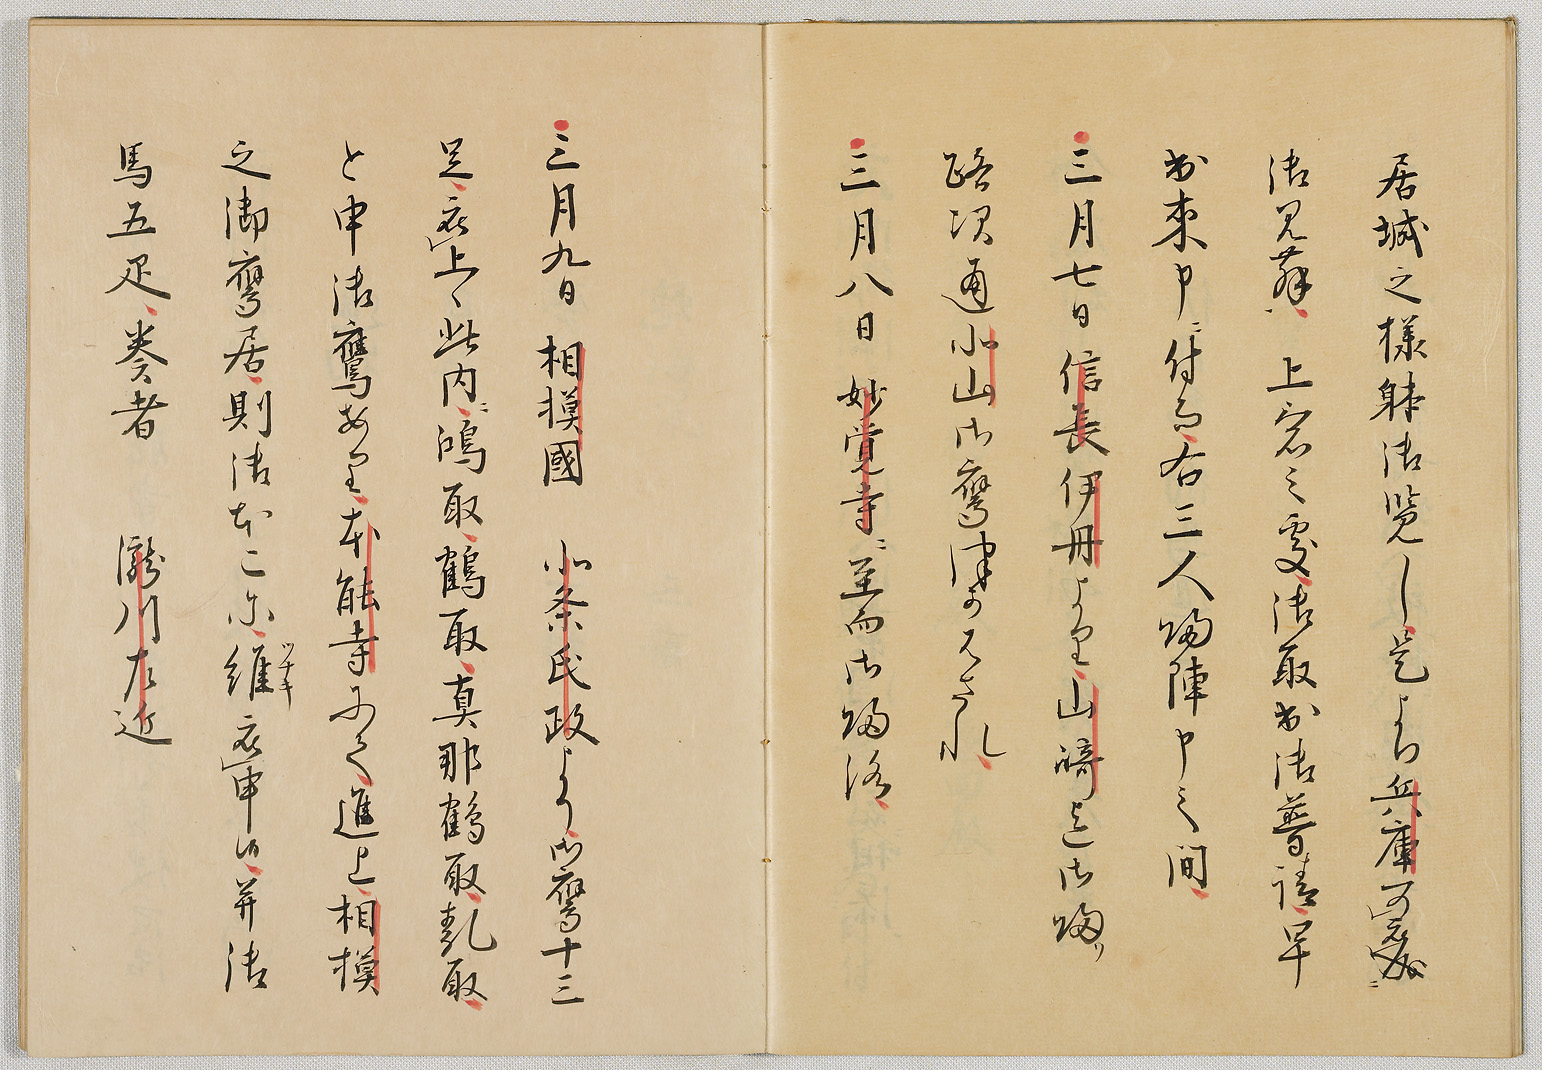 居城之様躰御覧し是より兵庫可
御見舞上意之處御取出御普請早
出来申ニ付而右三人帰陣申之間
三月七日信長伊丹より山崎迄御帰リ
路次通北山御鷹津かはされ
三月八日妙覚寺ニ至而御帰洛
三月九日 相模國 北条氏政より御鷹十三
足在上〻此内ニ鴻取鶴取真那鶴取乱取
と申御鷹あり本能寺にて進上相模
之御鷹居則御ほこに維ツナキ在申候并御
馬五疋奏者 瀧川左近